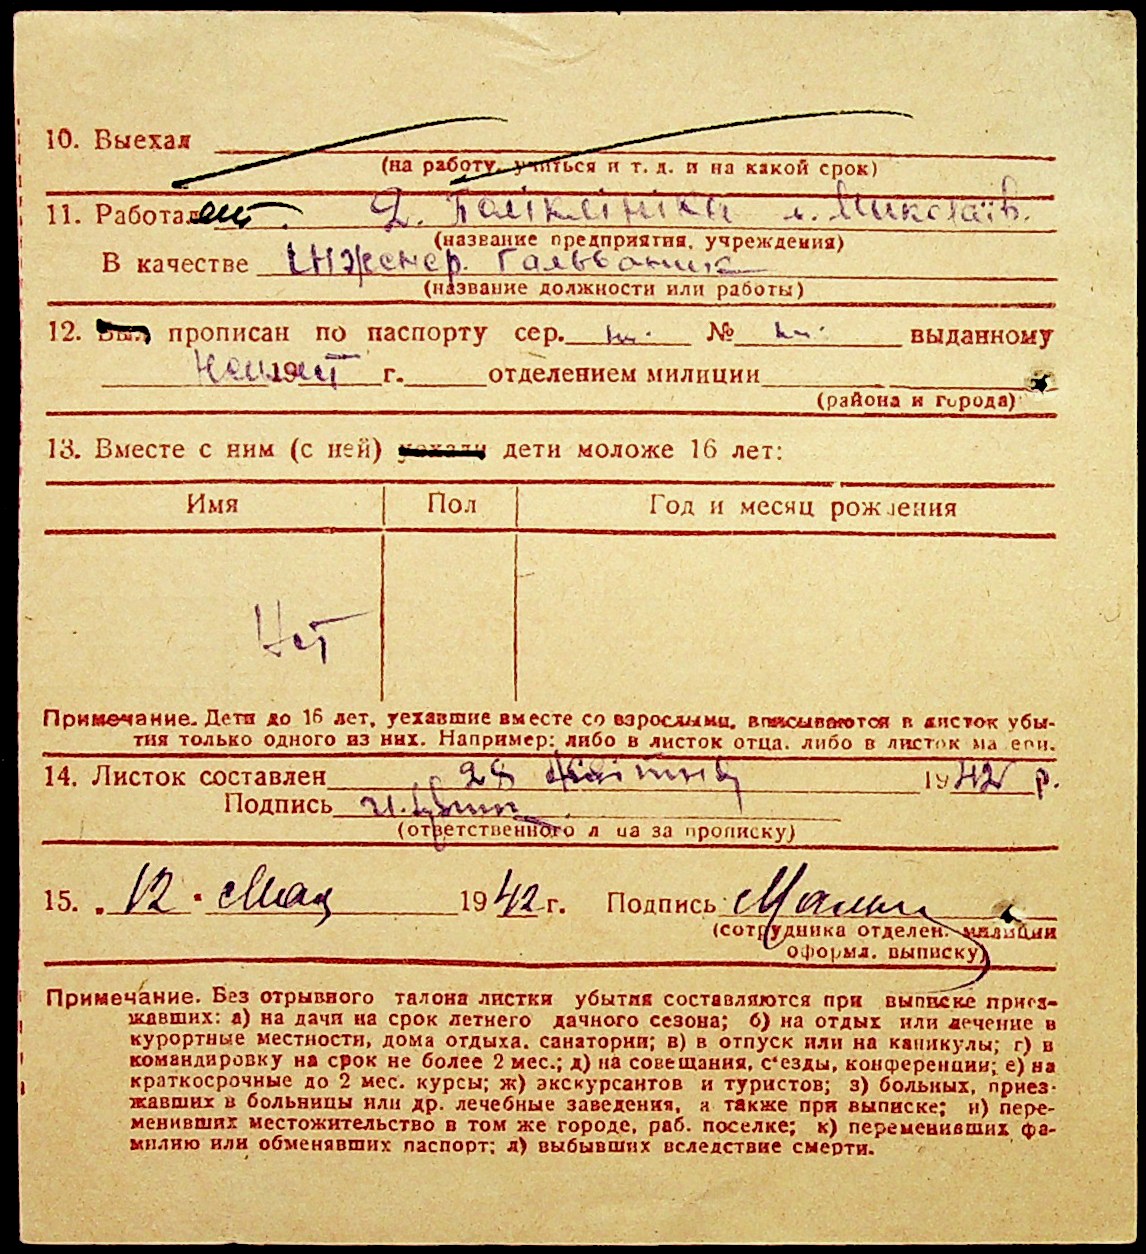 10. Выехал
(на работу, учиться и т. д. и на какой срок)
11. Работает. Поліклініка м. Миколаїв.
(название предприятия, учреждения)
В качестве Інженер.
(название должности или работы)
12. Был прописан по паспорту сер. № выданному
г. отделением милиции
(района и города)
13. Вместе с ним (с ней) уехали дети моложе 16 лет:
Имя Пол Год и месяц рождения
Нет
Примечание. Дети до 16 лет, уехавшие вместе со взрослыми, вписываются в листок убы-
тия только одного из них. Например: либо в листок отца, либо в листок ма ери.
14. Листок составлен 28 1942 р.
Подпись
(ответственного л ца за прописку)
15. 12 Мая 1942 г. Подпись
(сотрудника отделен. милиции
оформл. выписку)
Примечание. Без отрывного талона листки убытия составляются при выписке приез-
жавших: а) на дачи на срок летнего дачного сезона; б) на отдых или лечение в
курортные местности, дома отдыха, санатории; в) в отпуск или на каникулы; г) в
командировку на срок не более 2 мес.; д) на совещания, с'езды, конференции; е) на
краткосрочные до 2 мес. курсы; ж) экскурсантов и туристов; з) больных, приез-
жавших в больницы или др. лечебные заведения, а также при выписке; и) пере-
менивших местожительство в том же городе, раб. поселке; к) переменивших фа-
милию или обменявших паспорт; л) выбывших вследствие смерти.